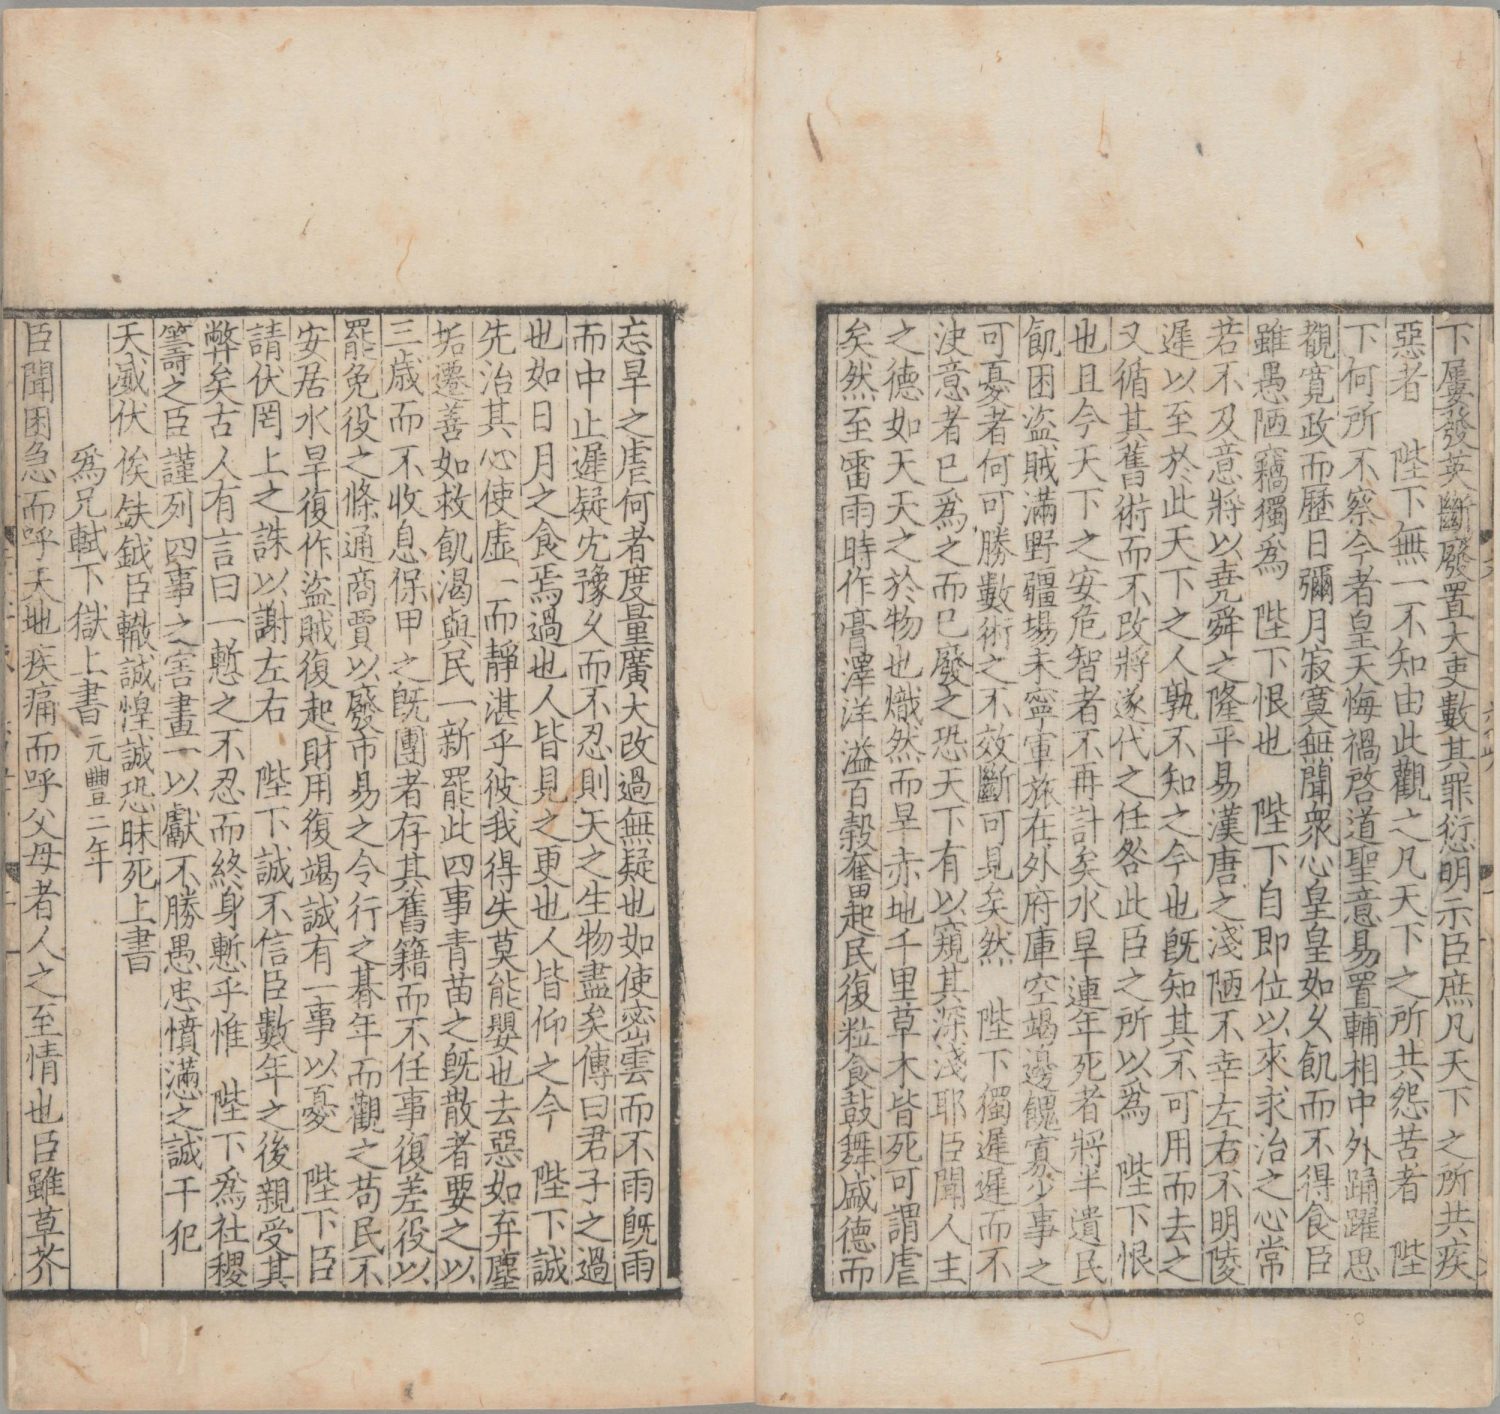 下屢發英斷廢置大吏數其罪愆明示臣庶凡天下之所共疾
惡者　陛下無一不知由此觀之凡天下之所共怨苦者　陛
下何所不察今者皇天悔禍啓道聖意易置輔相中外踊躍思
觀寬政而歷日彌月寂寞無聞衆心皇皇如久飢而不得食臣
雖愚陋竊獨爲　陛下恨也　陛下自即位以來求治之心常
若不及意將以堯舜之隆平易漢唐之淺陋不幸左右不明陵
遲以至於此天下之人孰不知之今也旣知其不可用而去之
又循其舊術而不改將遂代之任咎此臣之所以爲　陛下恨
也且今天下之安危智者不再計矣水旱連年死者將半遺民
飢困盜賊滿野疆場未寧軍旅在外府庫空竭邊餽寡少事之
可憂者何可勝數術之不效斷可見矣然　陛下獨遲遲而不
決意者已爲之而已廢之恐天下有以窺其深淺耶臣聞人主
之德如天天之於物也熾然而旱赤地千里草木皆死可謂虐
矣然至雷雨時作膏澤洋溢百穀奮起民復粒食鼓舞咸德而
忘旱之虐何者度量廣大改過無疑也如使密雲而不雨旣雨
而中止遲疑冘豫久而不忍則天之生物盡矣傳曰君子之過
也如日月之食焉過也人皆見之更也人皆仰之今　陛下誠
先治其心使虛一而靜湛乎彼我得失莫能嬰也去惡如弃塵
垢遷善如救飢渴與民一新罷此四事青苗之旣散者要之以
三歳而不收息保甲之旣團者存其舊籍而不任事復差役以
罷免役之條通商賈以廢市易之令行之朞年而觀之苟民不
安居水旱復作盜賊復起財用復竭誠有一事以憂　陛下臣
請伏罔上之誅以謝左右　陛下誠不信臣數年之後親受其
弊矣古人有言曰一慙之不忍而終身慙乎惟　陛下爲社稷
籌之臣謹列四事之害畫一以獻不勝愚忠憤滿之誠干犯
天威伏俟鈇鉞臣轍誠惶誠恐昧死上書
爲兄軾下獄上書 元豐二年
臣聞困急而呼天地疾痛而呼父母者人之至情也臣雖草芥